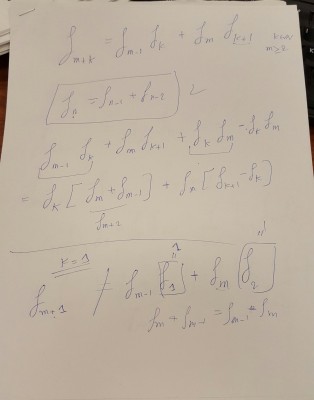 f_{m+k} = f_{m-1} f_k + f_m f_{k+1}
m≥k
f_n = f_{n-1} + f_{n-2}
f_{m-1} f_k + f_m f_{k+1} + f_k f_m - f_k f_m
= f_k [f_m + f_{m-1}] + f_m [f_{k+1} - f_k]
f_{m+2}
k=1
1
f_{m+1} ≠ f_{m-1} f_1 + f_m f_2
f_m + f_{m-1} = f_{m-1} + f_m